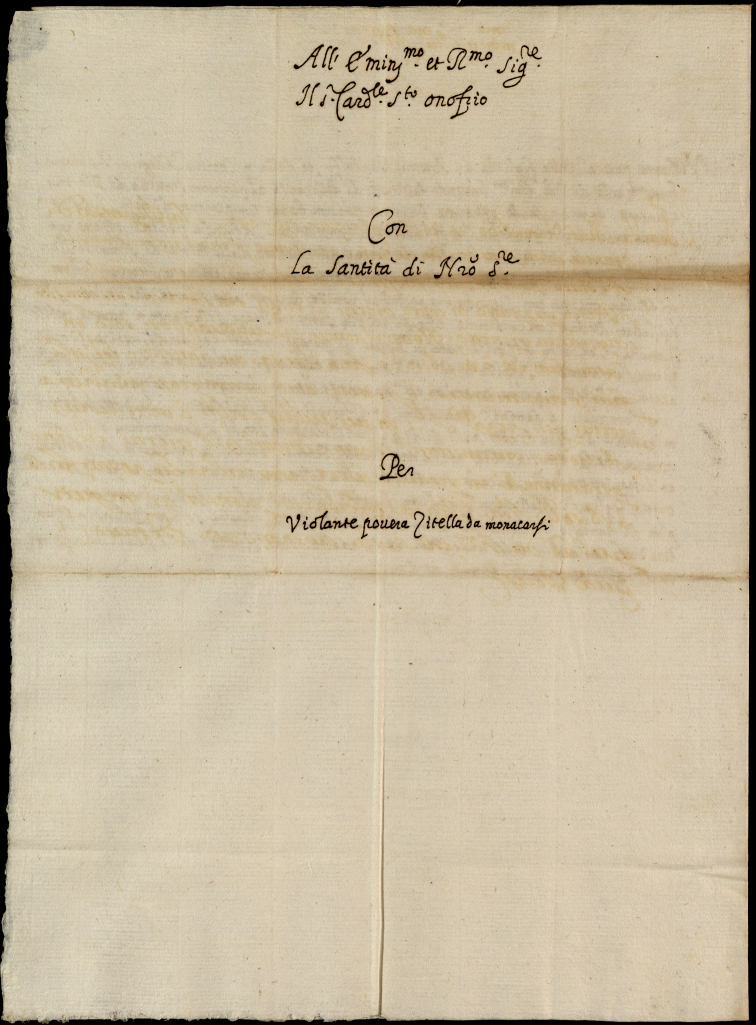 All' Emin̄mo et Rmo Sigre
Il sr Cardle Sto onofrio
Con
La Santità di Nrõ Sre
Per
Violante povera Zitella da monacarsi